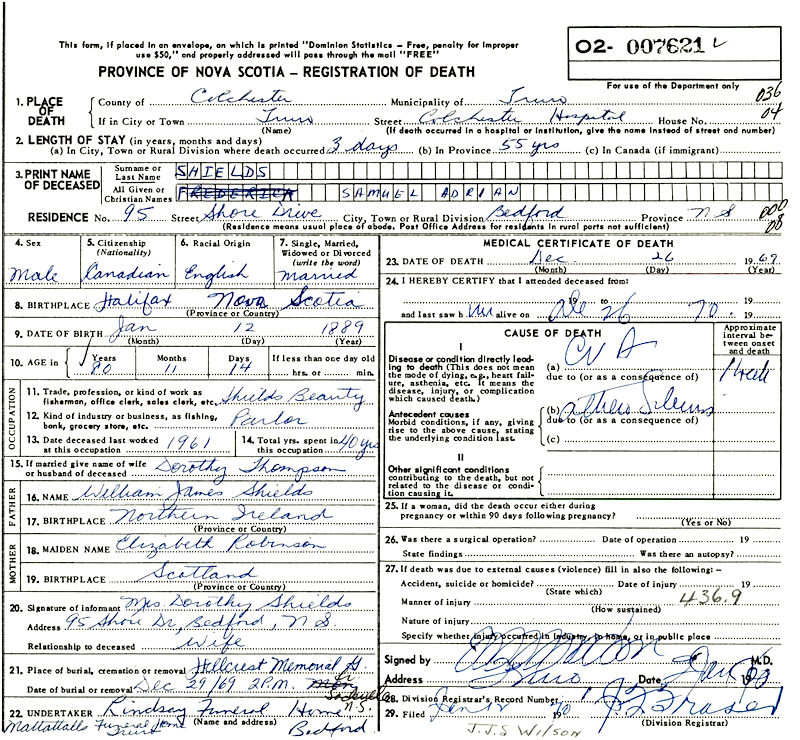 This form, if placed in an envelope, on which is printed "Dominion Statistics – Free, penalty for improper
use $50," and properly addressed will pass through the mail "FREE"
O2- 007621
PROVINCE OF NOVA SCOTIA – REGISTRATION OF DEATH
For use of the Department only
036
04
1. PLACE OF DEATH County of Colchester Municipality of Truro
If in City or Town Truro Street Colchester Hospital House No.
(Name) (If death occurred in a hospital or institution, give the name instead of street and number)
2. LENGTH OF STAY (in years, months and days)
(a) In City, Town or Rural Division where death occurred 3 days (b) In Province 55 yrs (c) In Canada (if immigrant)
3. PRINT NAME OF DECEASED Surname or Last Name SHIELDS
All Given or Christian Names FREDERICK SAMUEL ADRIAN
RESIDENCE No. 95 Street Shore Drive City, Town or Rural Division Bedford Province N S
000
08
(Residence means usual place of abode. Post Office Address for residents in rural parts not sufficient)
4. Sex 5. Citizenship (Nationality) 6. Racial Origin 7. Single, Married, Widowed or Divorced (write the word)
Male Canadian English Married
8. BIRTHPLACE Halifax Nova Scotia
(Province or Country)
9. DATE OF BIRTH Jan 12 1889
(Month) (Day) (Year)
10. AGE in Years Months Days If less than one day old
80 11 14 hrs. or min.
OCCUPATION
11. Trade, profession, or kind of work as fisherman, office clerk, sales clerk, etc. Shields Beauty
12. Kind of industry or business, as fishing, bank, grocery store, etc. Parlor
13. Date deceased last worked at this occupation 1961 14. Total yrs. spent in this occupation 40 yrs
15. If married give name of wife or husband of deceased Dorothy Thompson
FATHER
16. NAME William James Shields
17. BIRTHPLACE Northern Ireland
(Province or Country)
MOTHER
18. MAIDEN NAME Elizabeth Robinson
19. BIRTHPLACE Scotland
(Province or Country)
20. Signature of informant Mrs Dorothy Shields
Address 95 Shore Dr, Bedford, N S
Relationship to deceased Wife
21. Place of burial, cremation or removal Hillcrest Memorial
Date of burial or removal Dec 29/69 2 P.M.
N.S.
22. UNDERTAKER Lindsay Funeral Home
(Name and address)
Mattatall Funeral Home Truro Bedford
MEDICAL CERTIFICATE OF DEATH
23. DATE OF DEATH Dec 26 1969
(Month) (Day) (Year)
24. I HEREBY CERTIFY that I attended deceased from:
19 to 19
and last saw h im alive on Dec 26 70
CAUSE OF DEATH
Approximate interval between onset and death
I
Disease or condition directly leading to death (This does not mean the mode of dying, e.g., heart failure, asthenia, etc. It means the disease, injury, or complication which caused death.)
(a) CVA 1 week
due to (or as a consequence of)
Antecedent causes
Morbid conditions, if any, giving rise to the above cause, stating the underlying condition last.
(b)
due to (or as a consequence of)
(c)
II
Other significant conditions
contributing to the death, but not related to the disease or condition causing it.
25. If a woman, did the death occur either during
pregnancy or within 90 days following pregnancy?
(Yes or No)
26. Was there a surgical operation? Date of operation 19
State findings Was there an autopsy?
27. If death was due to external causes (violence) fill in also the following: –
Accident, suicide or homicide? Date of injury 19
(State which)
Manner of injury 436.9
(How sustained)
Nature of injury
Specify whether injury occurred in industry, to home, or in public place
Signed by M.D.
Address Truro Date Jan 19
28. Division Registrar's Record Number 1
29. Filed Jan 12 19 J L Fraser
(Division Registrar)
J.J.S WILSON